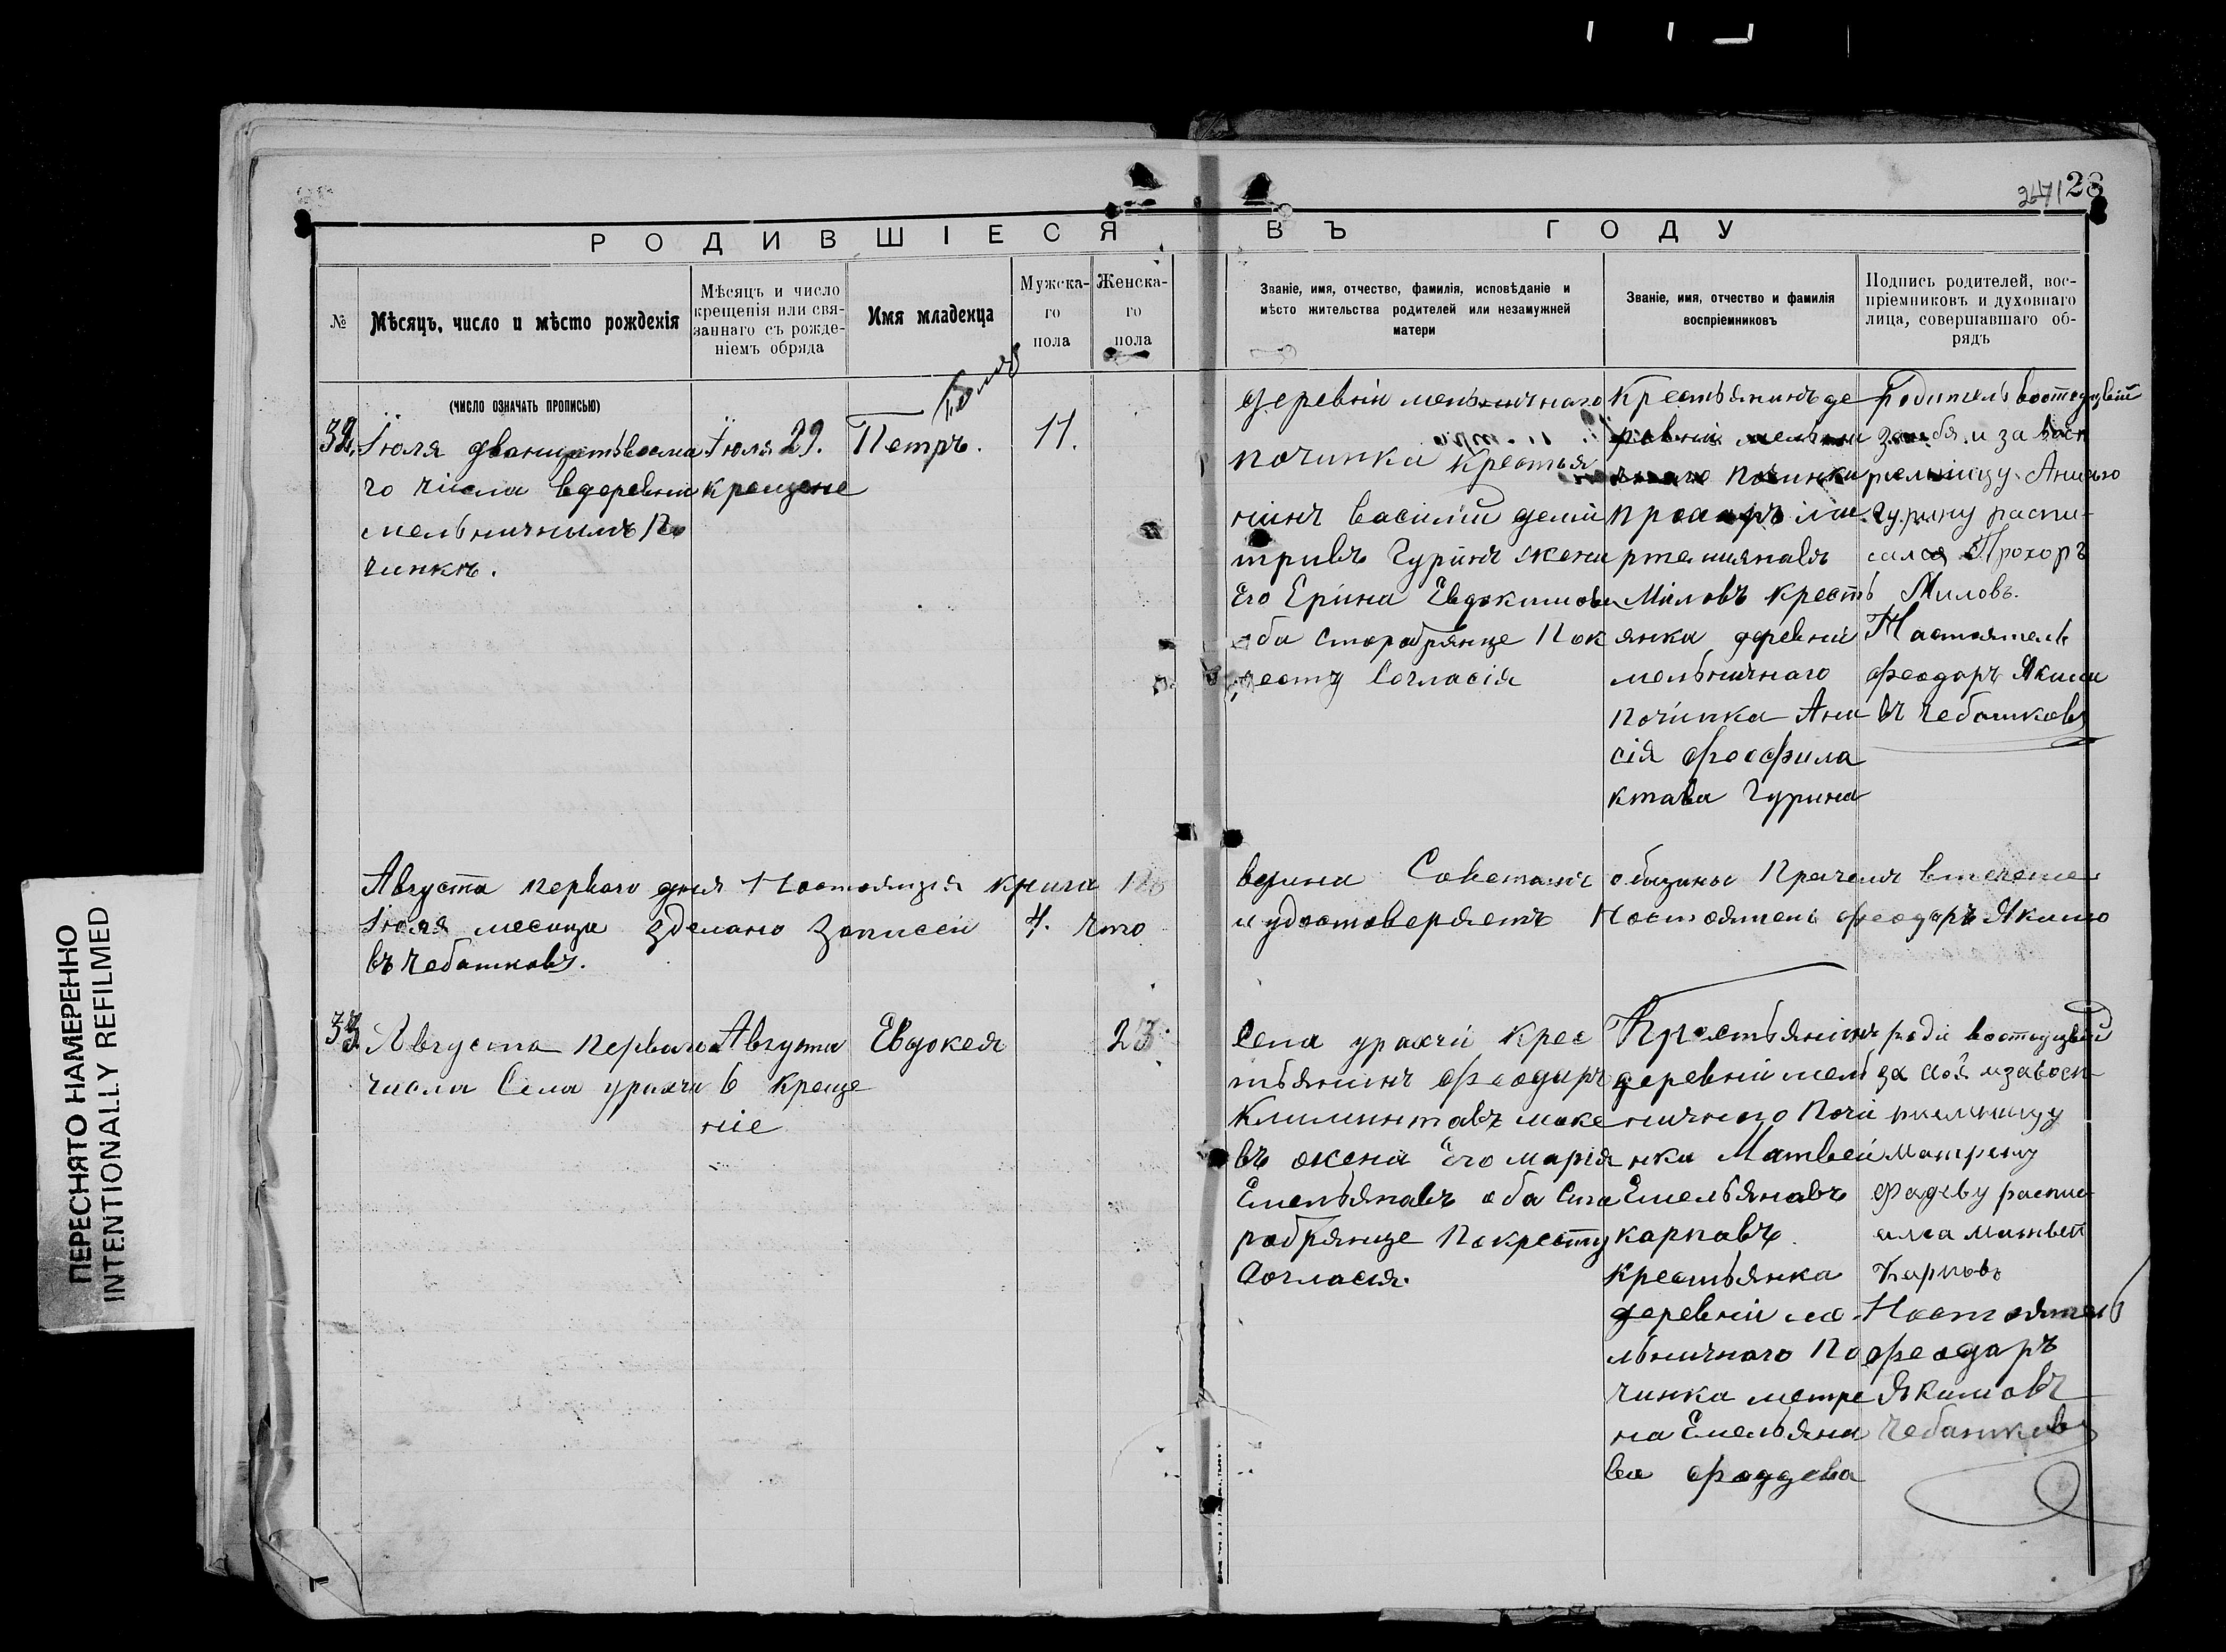 28
РОДИВШІЕСЯ ВЪ ГОДУ
№
Мѣсяцъ, число и мѣсто рожденія
Мѣсяцъ и число
крещенія или свя-
заннаго съ рожде-
ніемъ обряда
Имя младенца
Мужска-
го
пола
Женска-
го
пола
Званіе, имя, отчество, фамилія, исповѣданіе и
мѣсто жительства родителей или незамужней
матери
Званіе, имя, отчество и фамилія
воспріемниковъ
Подпись родителей, вос-
пріемниковъ и духовнаго
лица, совершавшаго об-
рядъ
(ЧИСЛО ОЗНАЧАТЬ ПРОПИСЬЮ)
32.
Іюля двацетьвосма
го числа вдеревни
мельничнымъ По
чинкѣ.
Іюля 29.
крещене
Петръ.
11.
деревни мельничнаго
починка Крестья
нинъ василій дми
тривъ Гуринъ жена
Его Ерина Евдокимова
оба старобрянце Пок
ресту Согласія
Крестьянинъ де
ревни мельни
чнаго починка
прохоръ
Миловъ крестъ
янка деревни
мельничнаго
Почінка Ани
сія феофила
ктава Гурина
Родитель
за себя и за восп
риемницу Анисью
Гурину распи-
сался Прохоръ
Миловъ.
Настоятель
феодоръ Якимо
въ Чебатковъ
Августа перваго дня Настоящія книга По
верина Саветамъ общины Причемъ втечение
Іюля месица зделано Записей 4. что
и удостоверяетъ Настоятель феодоръ Якимо
въ Чебатковъ.
33.
Августа перваго
числа Села урахчи
Августа
6 креще
ніе
Евдокея
23.
Села урахчи Крес
тьянинъ феодаръ
Климинтавъ маке
въ жена Его марія
Емельянавъ оба Ста
робрянце Покресту
Согласія.
Крестьянинъ
деревни мель
ничнаго Почи
нка Матвей
Емельянавъ
карпавъ.
Крестьянка
деревни ме
льничнаго По
чинка метре
на Емельяна
ва фаддева
за себя и завосп
риемницу
Матрену
Фадеву распис
алса матвей
Карповъ
Настоятель
феодаръ
Якимовъ
Чебатковъ
ПЕРЕСНЯТО НАМЕРЕННО
INTENTIONALLY REFILMED